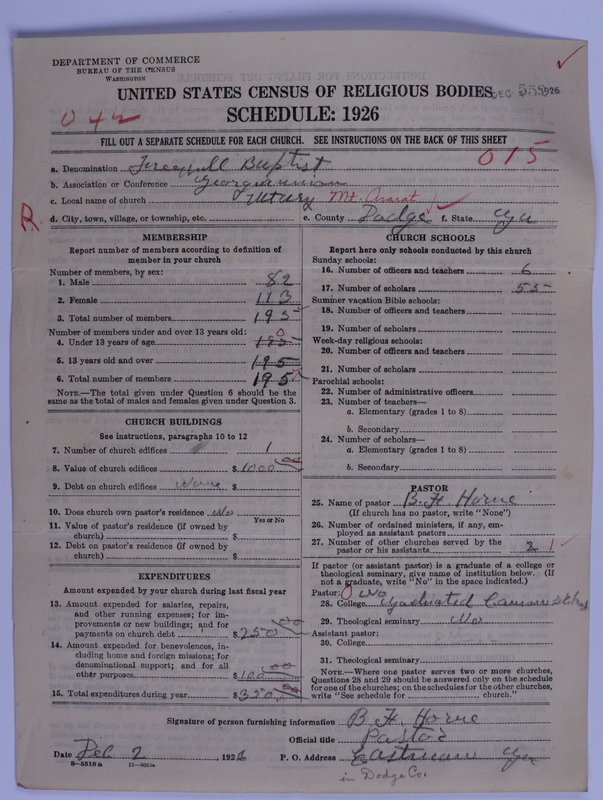 DEPARTMENT OF COMMERCE
BUREAU OF THE CENSUS
WASHINGTON
UNITED STATES CENSUS OF RELIGIOUS BODIES
SCHEDULE: 1926
042
015
FILL OUT A SEPARATE SCHEDULE FOR EACH CHURCH. SEE INSTRUCTIONS ON THE BACK OF THIS SHEET
a. Denomination Freewill Baptist
b. Association or Conference
c. Local name of church Mt. Ararat
R
d. City, town, village, or township, etc. e. County Dodge f. State Ga
MEMBERSHIP
Report number of members according to definition of member in your church
Number of members by sex:
1. Male 82
2. Female 113
3. Total number of members 195
Number of members under and over 13 years old:
4. Under 13 years of age 0
5. 13 years old and over 195
6. Total number of members 195
NOTE.—The total given under Question 6 should be the same as the total of males and females given under Question 3.
CHURCH BUILDINGS
See instructions, paragraphs 10 to 12
7. Number of church edifices 1
8. Value of church edifices $1000 00
9. Debt on church edifices None
10. Does church own pastor's residence No
Yes or No
11. Value of pastor's residence (if owned by church) $
12. Debt on pastor's residence (if owned by church) $
EXPENDITURES
Amount expended by your church during last fiscal year
13. Amount expended for salaries, repairs, and other running expenses; for improvements or new buildings; and for payments on church debt $250 00
14. Amount expended for benevolences, including home and foreign missions; for denominational support; and for all other purposes $100 00
15. Total expenditures during year $350 00
CHURCH SCHOOLS
Report here only schools conducted by this church
Sunday schools:
16. Number of officers and teachers 6
17. Number of scholars 55
Summer vacation Bible schools:
18. Number of officers and teachers
19. Number of scholars
Week-day religious schools:
20. Number of officers and teachers
21. Number of scholars
Parochial schools:
22. Number of administrative officers
23. Number of teachers—
a. Elementary (grades 1 to 8)
b. Secondary
24. Number of scholars—
a. Elementary (grades 1 to 8)
b. Secondary
PASTOR
25. Name of pastor B. H. Horne
(If church has no pastor, write "None")
26. Number of ordained ministers, if any, employed as assistant pastors
27. Number of other churches served by the pastor or his assistants 2 1
If pastor (or assistant pastor) is a graduate of a college or theological seminary, give name of institution below. (If not a graduate, write "No" in the space indicated.)
Pastor: No
28. College Graduated
29. Theological seminary No
Assistant pastor:
30. College
31. Theological seminary
NOTE.—Where one pastor serves two or more churches, Questions 28 and 29 should be answered only on the schedule for one of the churches; on the schedules for the other churches, write "See schedule for church."
Signature of person furnishing information B. H. Horne
Official title Pastor
Date Dec 2, 1926 P. O. Address Eastman Ga
8-5518a
in Dodge Co.